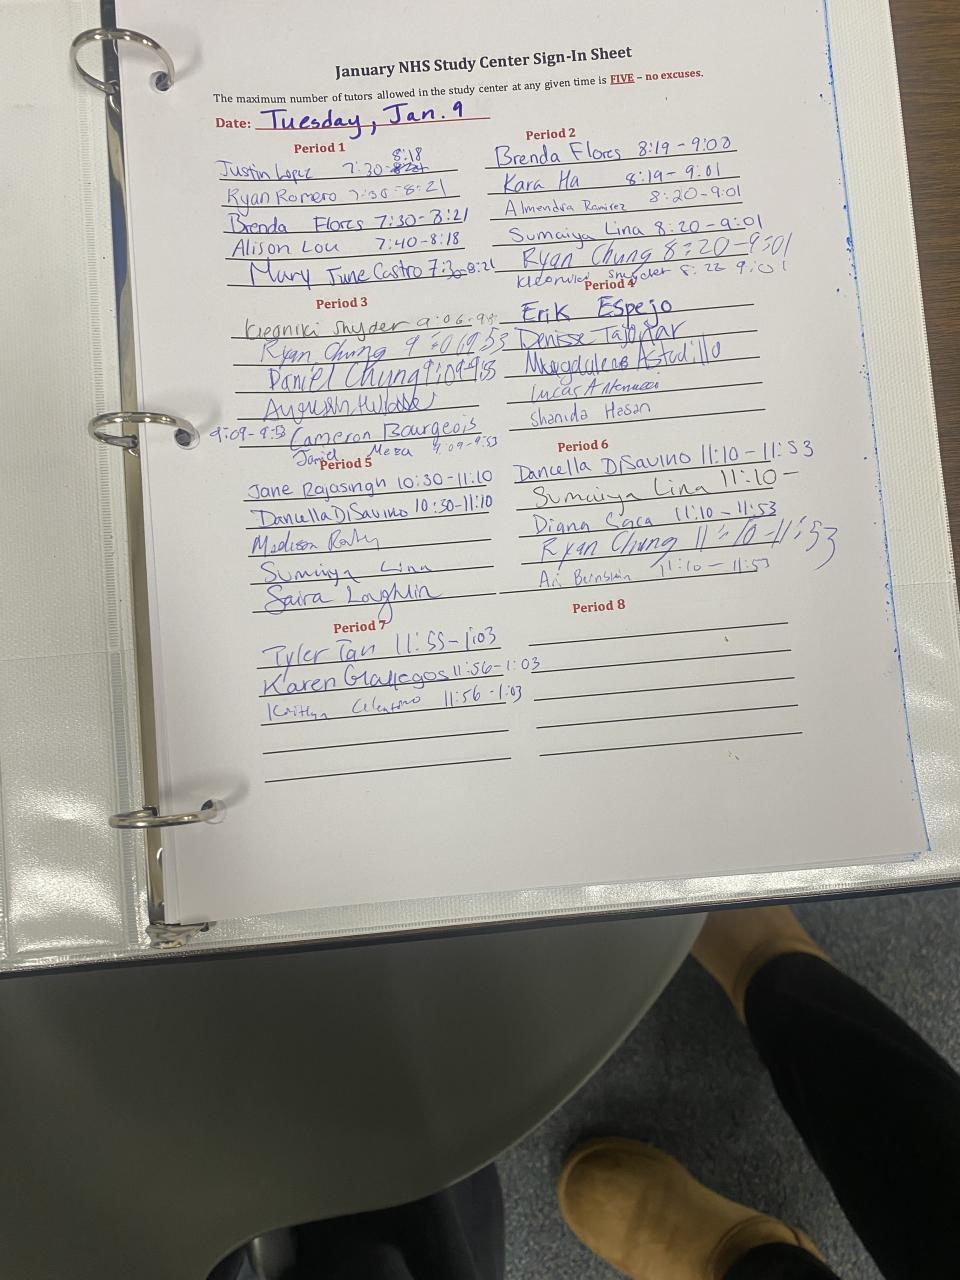 January NHS Study Center Sign-In Sheet
The maximum number of tutors allowed in the study center at any given time is FIVE – no excuses.
Date: Tuesday, Jan. 9
Period 1
8:18
Justin Lopez 7:30-
Ryan Romero 7:30-8:21
Brenda Flores 7:30-8:21
Alison Lou 7:40-8:18
Mary June Castro 7:30-8:21
Period 2
Brenda Flores 8:19-9:00
Kara Ha 8:19-9:01
Almendra Ramirez 8:20-9:01
Sumaiya Lina 8:20-9:01
Ryan Chung 8:20-9:01
Snyder 8:22 9:01
Period 3
Snyder 9:06-
Ryan Chung 9:01 9:53
Daniel Chung 9:09-9:53
9:09-9:53 Cameron Bourgeois
Meza 9:09-9:53
Period 4
Erik Espejo
Denisse
Astudillo
Lucas
Shanida Hasan
Period 5
Jane Rajasingh 10:30-11:10
Daniella DiSavino 10:30-11:10
Madison
Sumaiya Lina
Saira Loughlin
Period 6
Daniella DiSavino 11:10-11:53
Sumaiya Lina 11:10-
Diana Saca 11:10-11:53
Ryan Chung 11:10-11:53
Ari Bernstein 11:10-11:53
Period 7
Tyler Tan 11:55-1:03
Karen Gallegos 11:56-1:03
Kaitlyn 11:56-1:03
Period 8